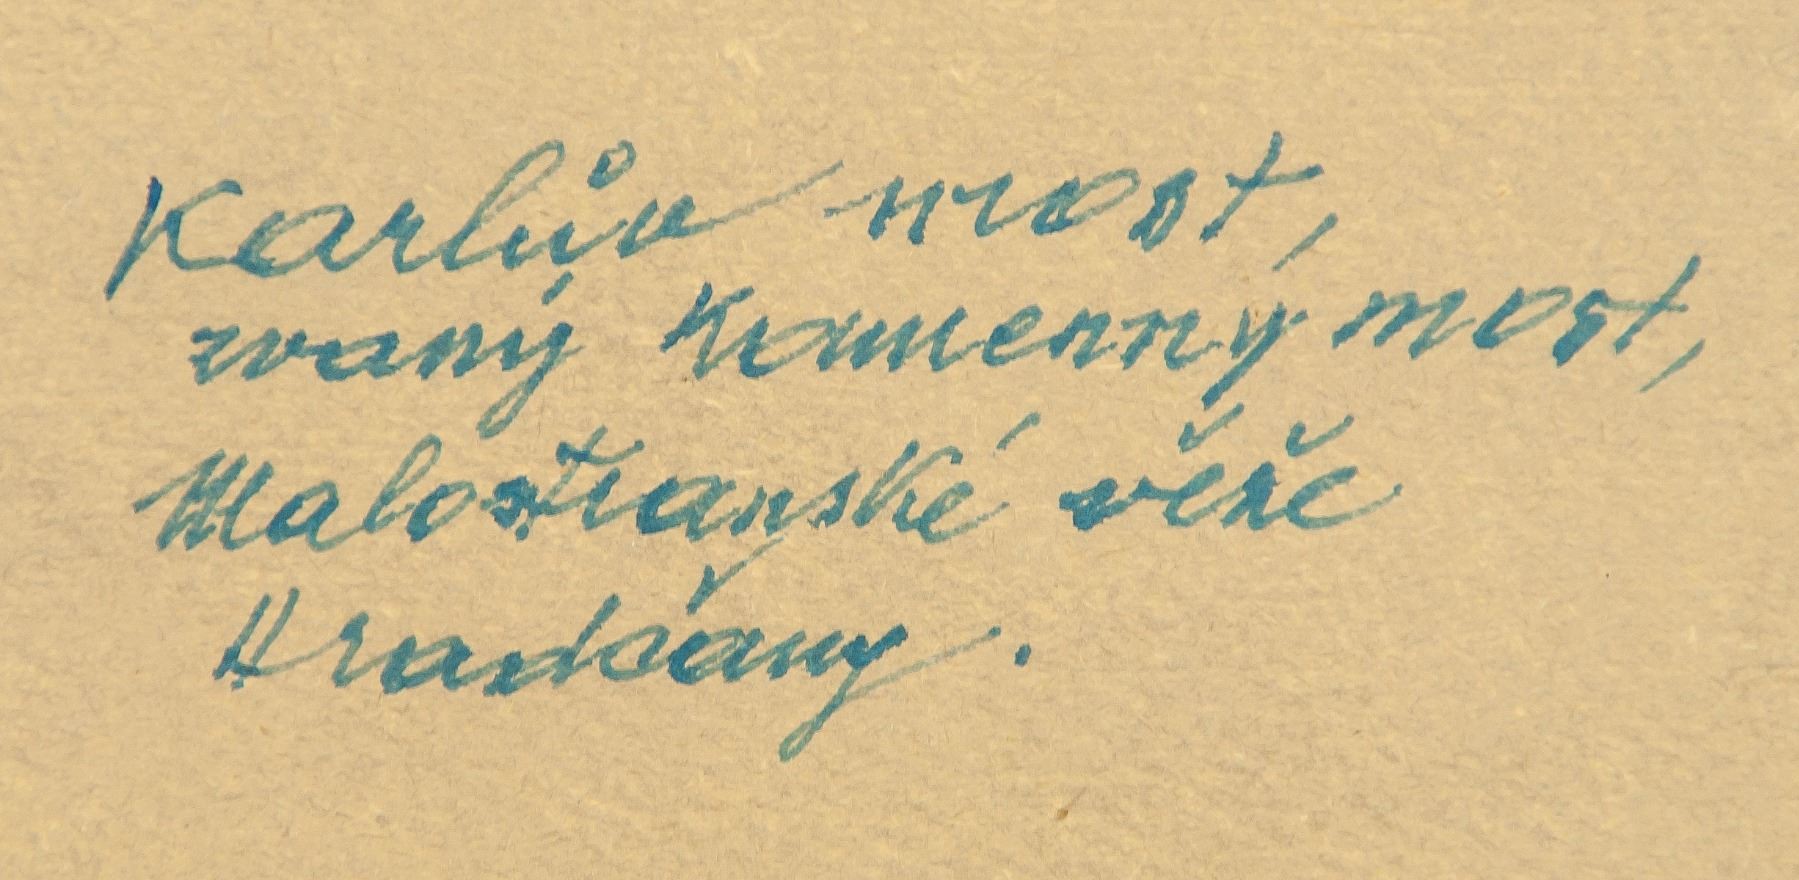 Karlův most,
zvaný Kamenný most,
Malostranské věže
Hradčany.